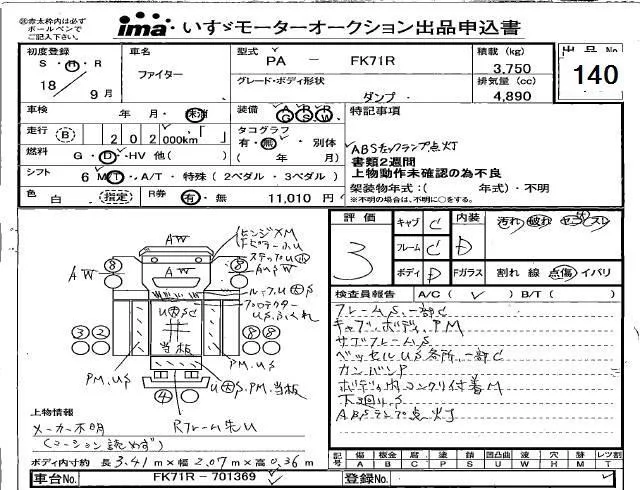 ㊟赤太枠内は必ず
ボールペンで
ご記入下さい。
ima いすゞモーターオークション出品申込書
初度登録 車名 型式 積載 (kg) 出品No
S・H・R ファイター PA － FK71R 3,750 140
18 9月 グレード・ボディ形状 排気量 (cc)
ダンプ 4,890
車検 年 月・未・抹 装備 A/G P/S R/W 特記事項
走行 B 202,000km タコグラフ 有・無・別体 ABSチェックランプ点灯
燃料 G・D・HV 他( ) ( 年 月) 書類2週間
上物動作未確認の為不良
シフト 6 MT・A/T・特殊 (2ペダル・3ペダル) 架装物年式：( 年式)・不明
色 白 指定 R券 有・無 11,010 円 ※不明の場合は、不明に○をする。
評価 キャブ C 内装 汚れ 破れ コゲ スレ
3 フレーム C D
ボディ D Fガラス 割れ 線 点傷 イバリ
検査員報告 A/C ( ✓ ) B/T ( )
フレームS、一部C
キャブ・ボディ、PM
サブフレームS
ベッセルUS各所、一部C
カンバンP
ボディ内コンクリ付着M
下廻りS
ABSランプ点灯
AW
AW
AW
8 8
ヒンジXM
ステップU小
AW
ルーフU大S
プロテクター
US
U大S
当板
3 2 8 8
PM、US
U大S、PM、当板
4
上物情報
メーカー不明 Rフレーム先U
(コーション読めず)
ボディ内寸約 長 3.41 m×幅 2.07 m×高 0.36 m
記号 傷 板金 腐 塗 錆 凹凸曲 波 穴 跡 レツ割
A B C P S U W H M T
車台No. FK71R－701369 登録No.